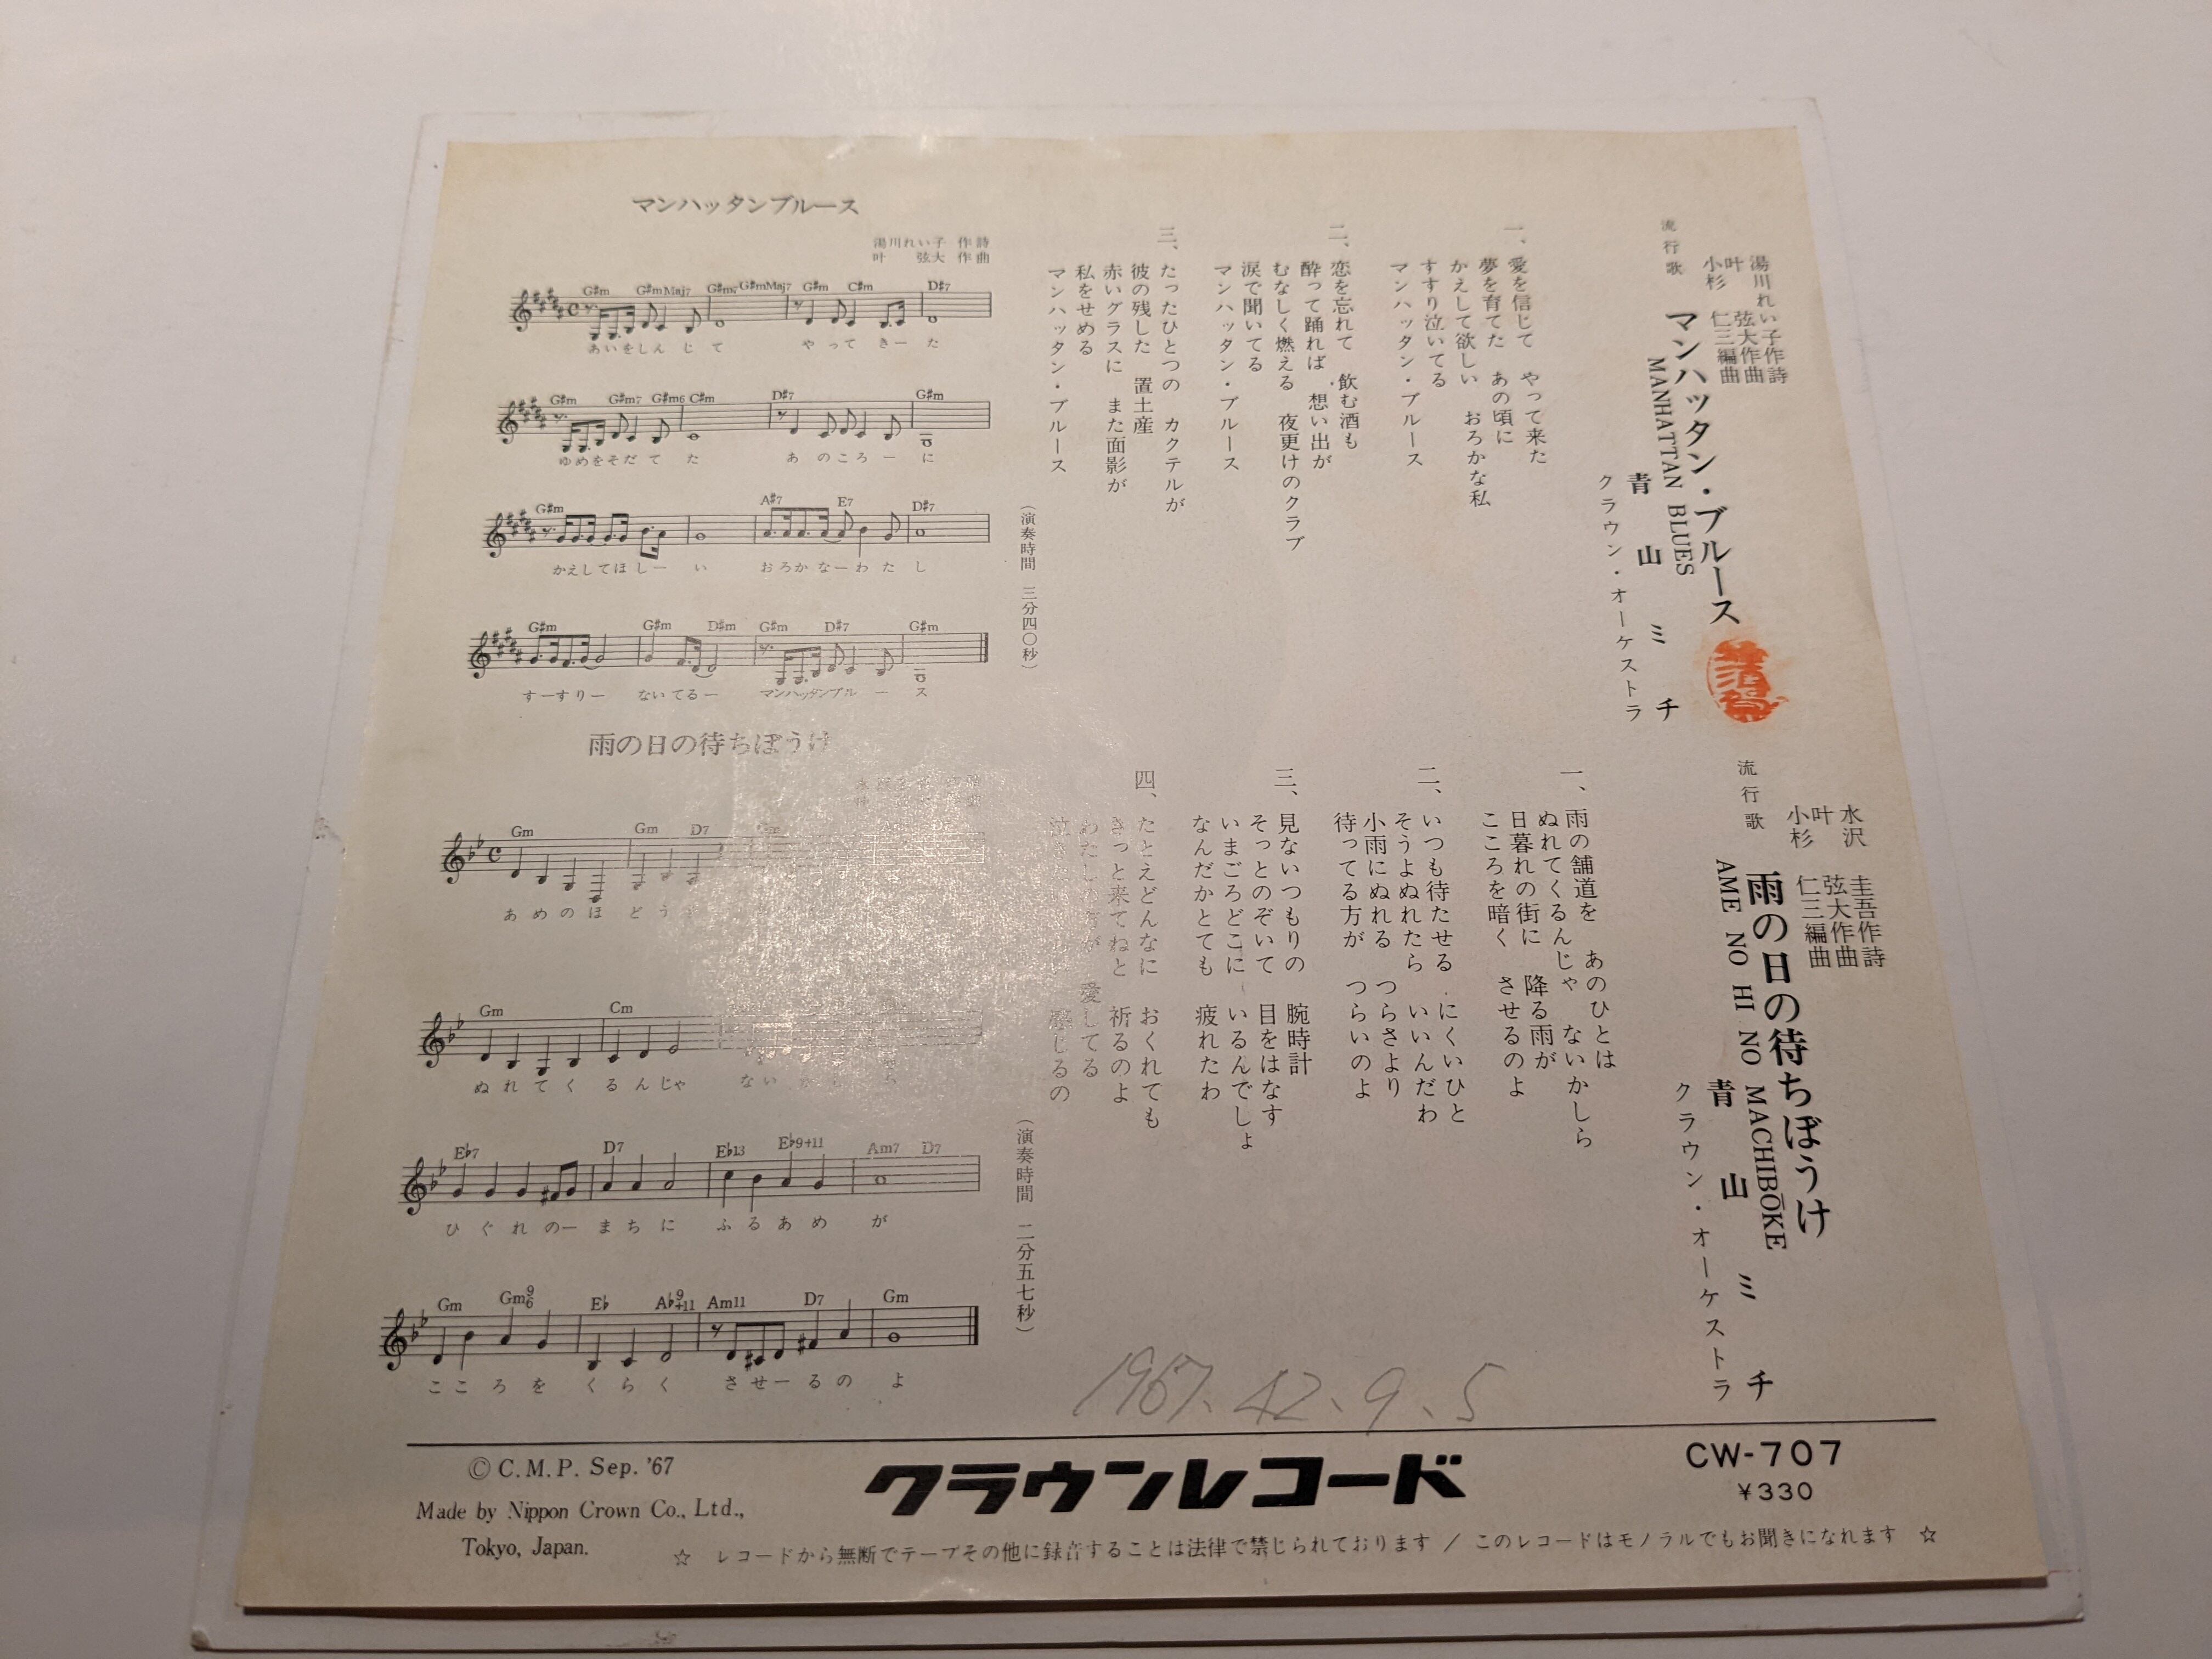 流行歌
湯川れい子作詩
叶弦大作曲
小杉仁三編曲
マンハッタン・ブルース
MANHATTAN BLUES
青山ミチ
クラウン・オーケストラ
一、愛を信じて やって来た
夢を育てた あの頃に
かえして欲しい おろかな私
すすり泣いてる
マンハッタン・ブルース
二、恋を忘れて 飲む酒も
酔って踊れば 想い出が
むなしく燃える 夜更けのクラブ
涙で聞いてる
マンハッタン・ブルース
三、たったひとつの カクテルが
彼の残した 置土産
赤いグラスに また面影が
私をせめる
マンハッタン・ブルース
(演奏時間 三分四〇秒)
マンハッタンブルース
湯川れい子 作詩
叶 弦大 作曲
G#m G#mMaj7 G#m7 G#mMaj7 G#m C#m D#7
あいをしんじて やってきーた
G#m G#m7 G#m6 C#m D#7 G#m
ゆめをそだてた あのころーに
G#m A#7 E7 D#7
かえしてほしーい おろかなーわたし
G#m G#m D#m G#m D#7 G#m
すーすりー ないてるー マンハッタンブルース
流行歌
水沢圭吾作詩
叶弦大作曲
小杉仁三編曲
雨の日の待ちぼうけ
AME NO HI NO MACHIBŌKE
青山ミチ
クラウン・オーケストラ
一、雨の舗道を あのひとは
ぬれてくるんじゃ ないかしら
日暮れの街に 降る雨が
こころを暗く させるのよ
二、いつも待たせる にくいひと
そうよぬれたら いいんだわ
小雨にぬれる つらさより
待ってる方が つらいのよ
三、見ないつもりの 腕時計
そっとのぞいて 目をはなす
いまごろどこに いるんでしょ
なんだかとても 疲れたわ
四、たとえどんなに おくれても
きっと来てねと 祈るのよ
愛してる
じるの
(演奏時間 二分五七秒)
雨の日の待ちぼうけ
Gm Gm D7
あめのほどう
Gm Cm
ぬれてくるんじゃ ない
E♭7 D7 E♭13 E♭9+11 Am7 D7
ひぐれのーまちに ふるあめが
Gm Gm9 6 E♭ A♭9 +11 Am11 D7 Gm
こころをくらく させーるのよ
1967、42、9、5
© C.M.P. Sep. '67
Made by Nippon Crown Co., Ltd.,
Tokyo, Japan.
クラウンレコード
CW-707
¥330
☆ レコードから無断でテープその他に録音することは法律で禁じられております / このレコードはモノラルでもお聞きになれます ☆